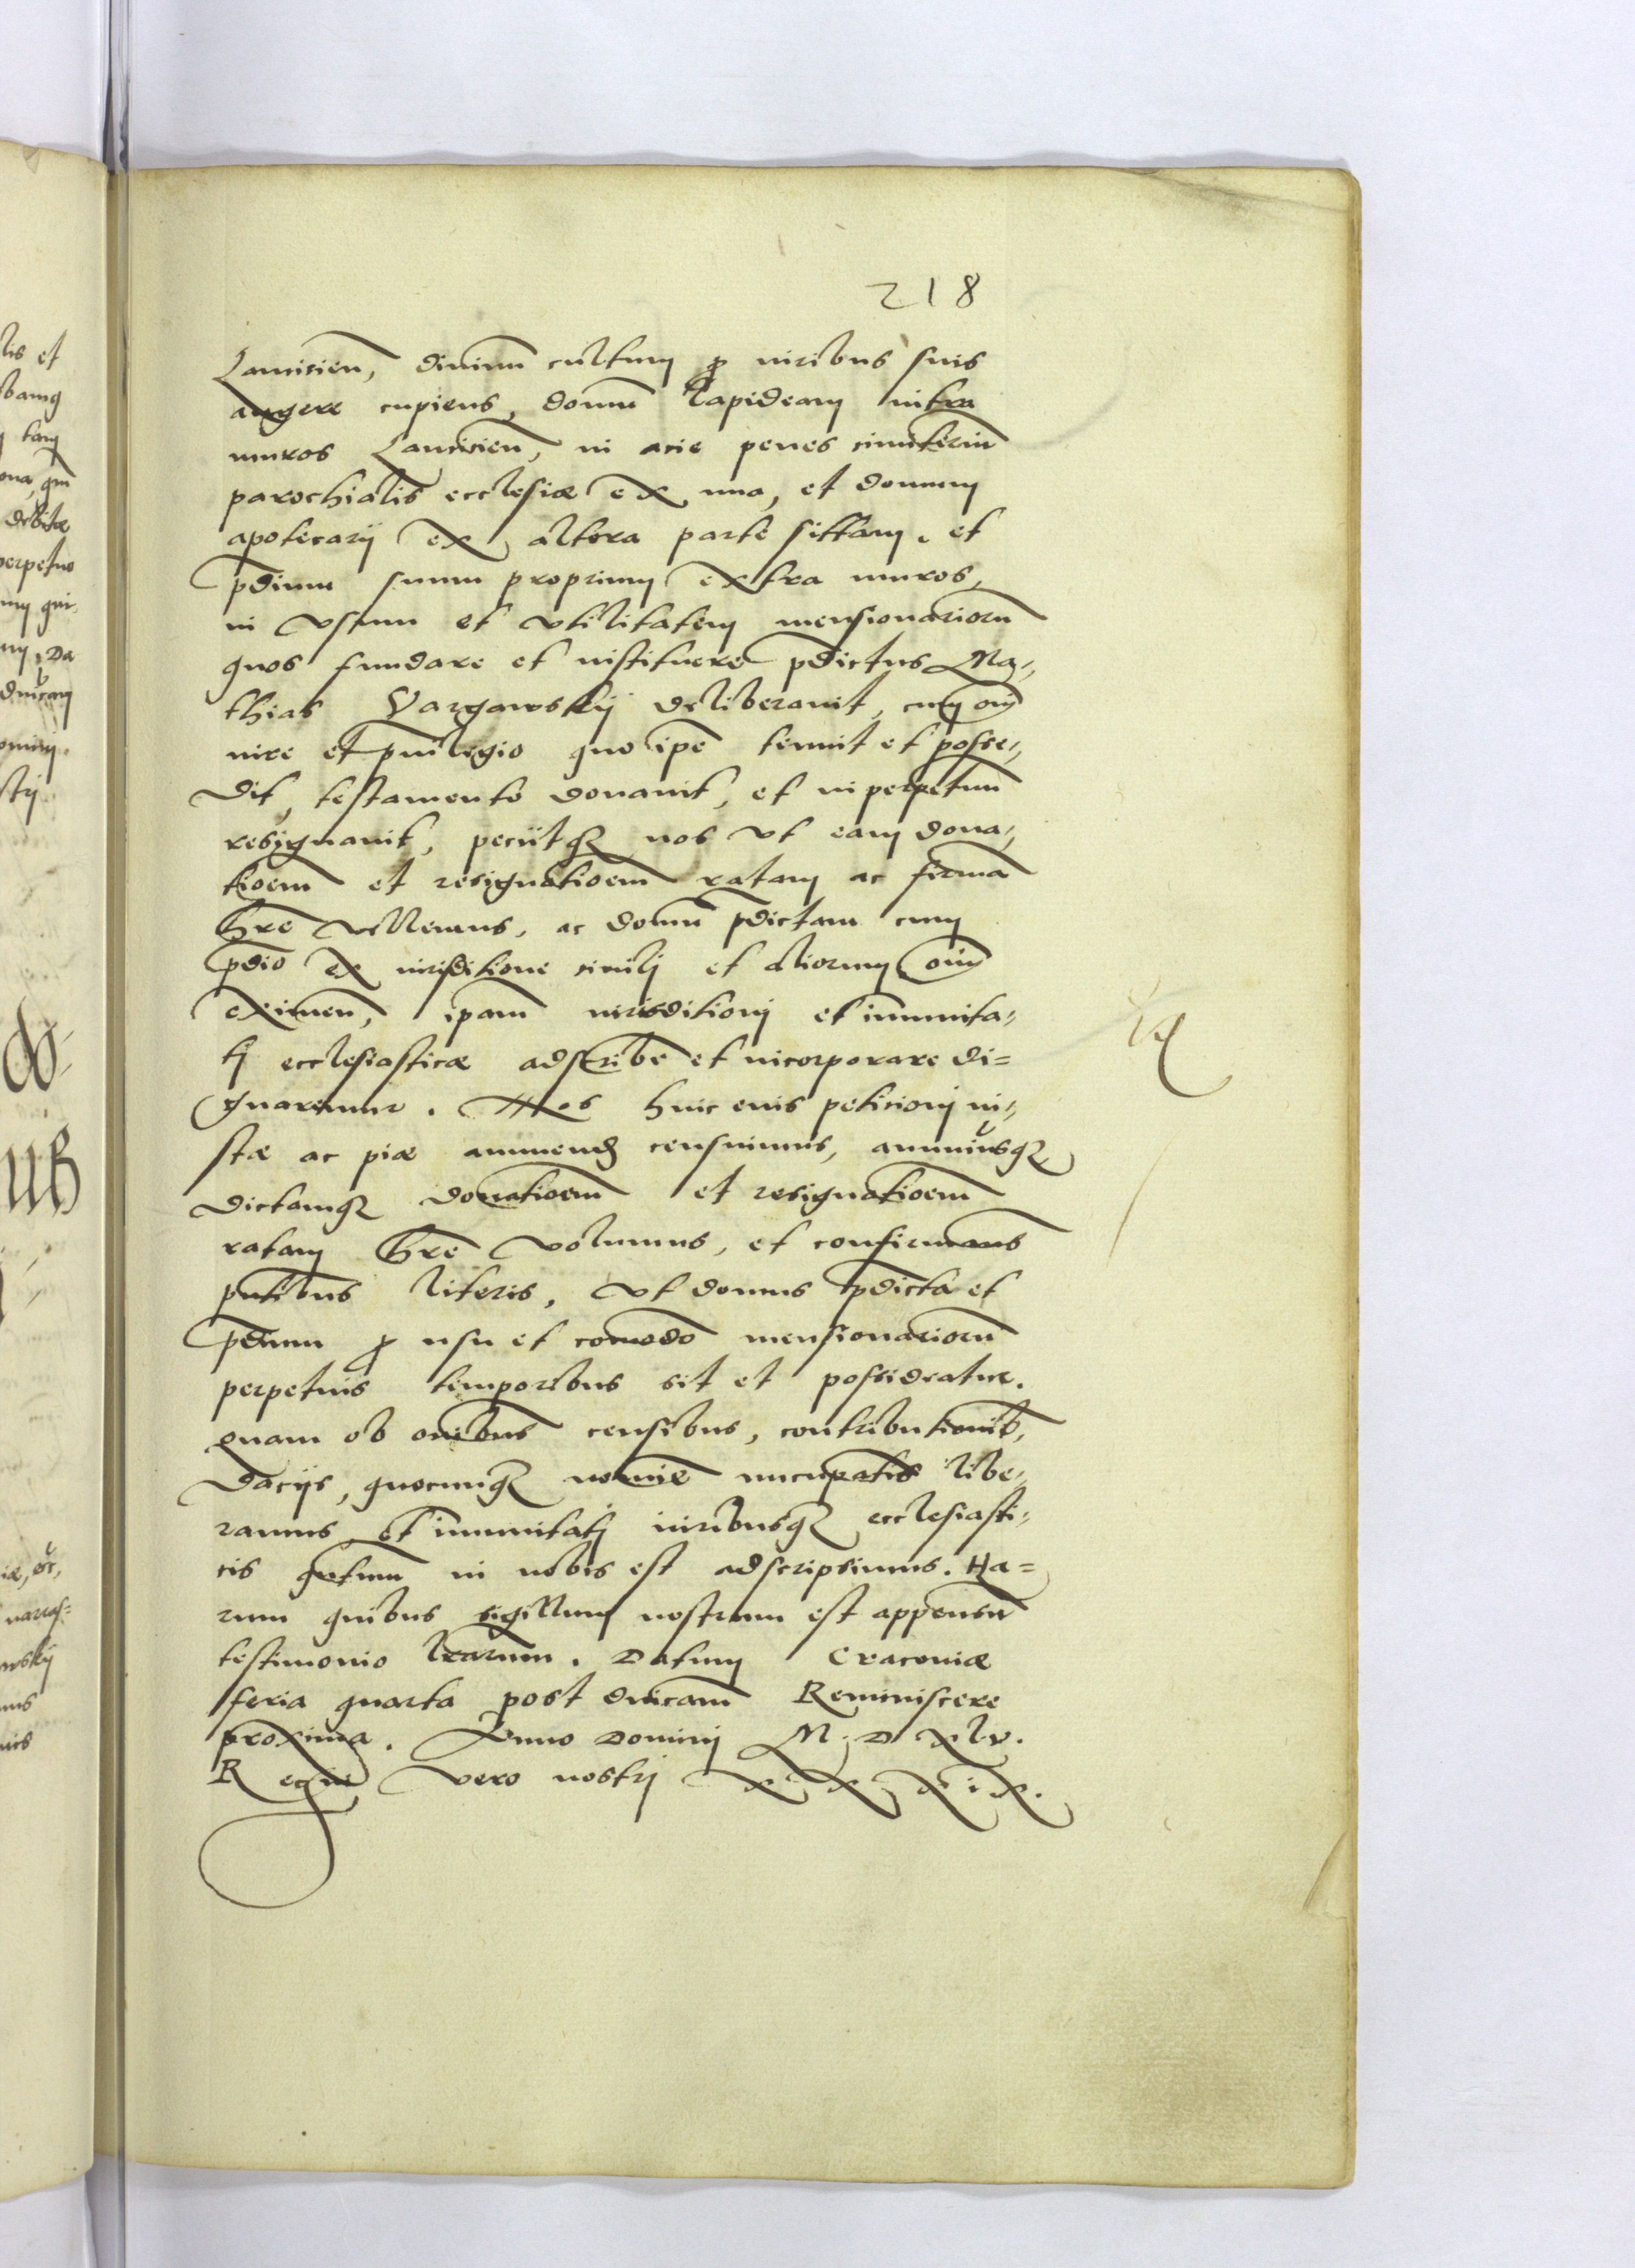 218
Lancicien̄, diuinū cultum ꝓ viribus suis
augere cupiens, domū lapideam intra
muros Lancicien̄, in acie penes cimiteriū
parochialis ecclesiæ ex una, et domum
apotecarij ex altera parte sittam, et
p̄dium suum proprium extra muros,
in vsum et vtilitatem mensionariorū
quos fundare et instituere p̄dictus Ma-
thias Vargawskij deliberauit, cum om̄i
iure et priuilegio quo ip̄e tenuit et posse-
dit, testamento donauit, et in perpetuū
resignauit, peciitqꝫ nos vt eam dona-
tioem̄ et resignatioem̄ ratam ac firmā
h̄re vellemus, ac domū p̄dictam cum
p̄dio ex iurisditione ciuilj et aliorum om̄iū
eximen̄, ip̄am iurisditionj et immunita-
tj ecclesiasticæ adscribe et incorporare di=
gnaremur. Nos huic eius peticionj iu-
stæ ac piæ annuend censuimus, annuimusqꝫ
dictamqꝫ donatioem̄ et resignatioem̄
ratam h̄re volumus, et confirmams
pn̄tibus literis, vt domus p̄dicta et
p̄dium ꝓ usu et comodo mensionariorū
perpetuis temporibus sit et possideatur.
quam ob om̄ibus censibus, contributionib,
dacijs, quocunqꝫ nomīe nūcupatis libe-
ramus et immunitatj iuribusqꝫ ecclesiasti-
cis qn̄tum in nobis est adscripsimus. Ha=
rum quibus sigillum nostrum est appensū
testimonio lrarum. Datum Cracouiæ
feria quarta post dnicam Reminiscere
proxima. Anno Dominj M. D xl.v.
Regni vero nostrj x x x i x.